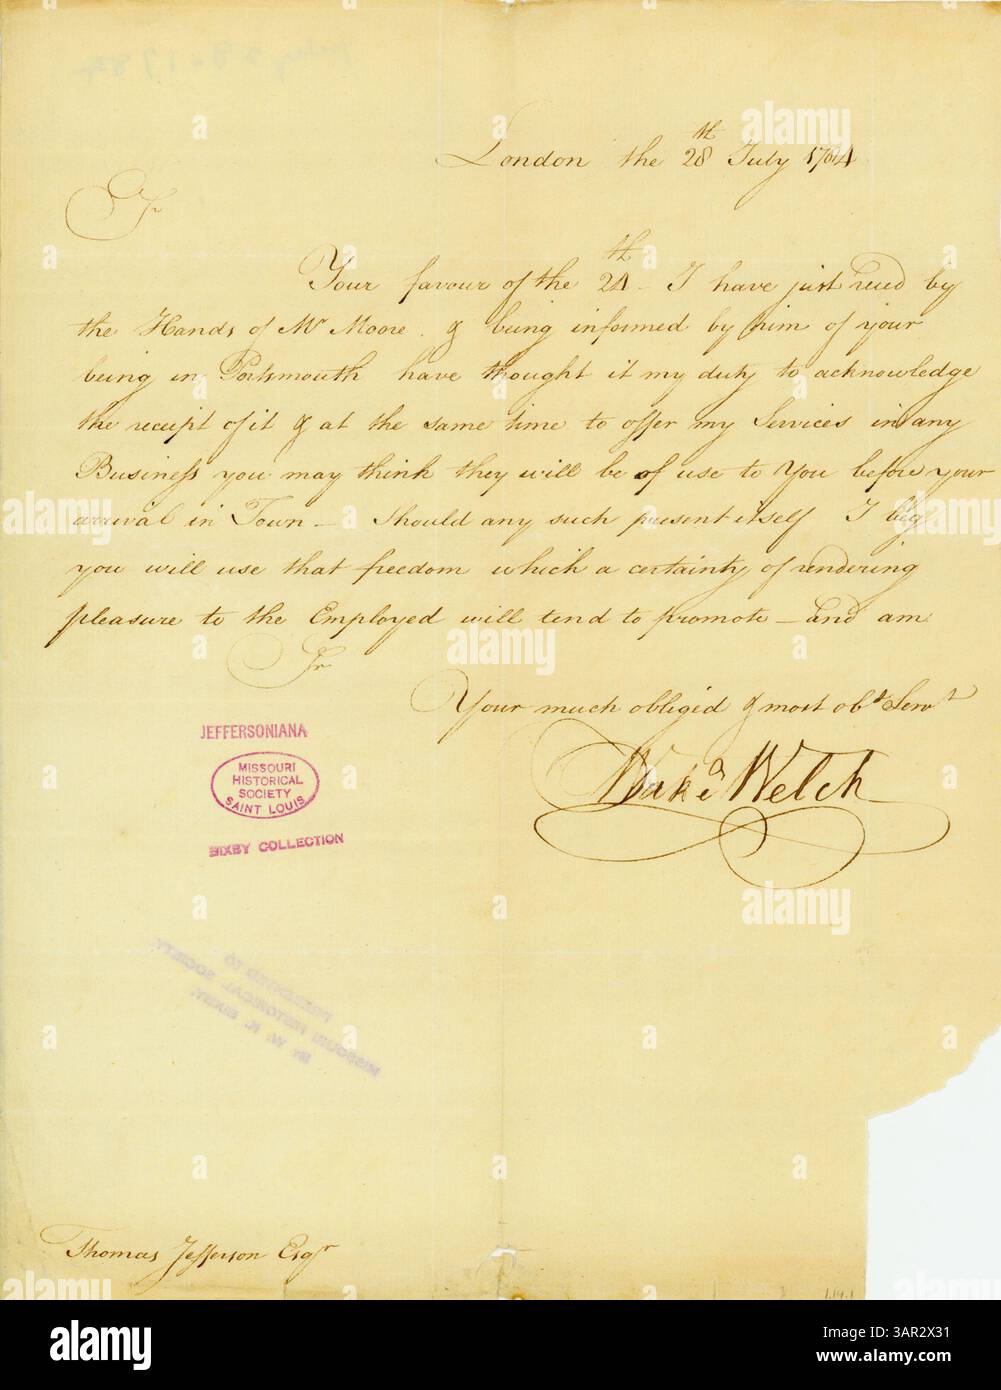 London the 28th July 1784
Sr
Your favour of the 24th I have just recd by
the Hands of Mr Moore & being informed by him of your
being in Portsmouth have thought it my duty to acknowledge
the receipt of it & at the same time to offer my Services in any
Business you may think they will be of use to You before your
arrival in Town — Should any such present itself I beg
you will use that freedom which a certainty of rendering
pleasure to the Employed will tend to promote — and am
Sr
Your much obliged & most obt Servt
Wakd Welch
JEFFERSONIANA
MISSOURI
HISTORICAL
SOCIETY
SAINT LOUIS
BIXBY COLLECTION
PRESENTED TO
MISSOURI HISTORICAL SOCIETY
BY W. K. BIXBY.
Thomas Jefferson Esqr
1.14.1
alamy
Image ID: 3AR2X31
www.alamy.com